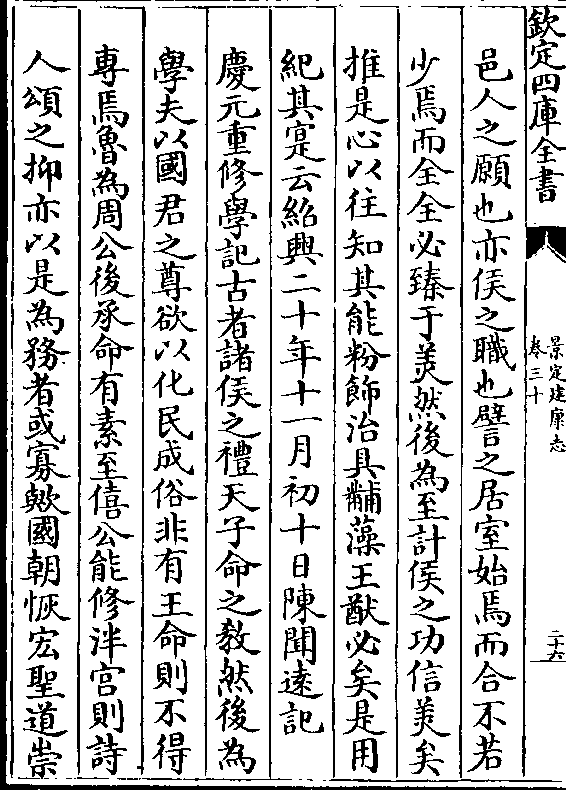 欽定四庫全書
景定建康志
卷三十
二十六
邑人之願也亦侯之職也譬之居室始焉而合不若
少焉而全全必臻于羙然後為至計侯之功信羙矣
推是心以往知其能粉飾治具黼藻王猷必矣是用
紀其寔云紹興二十年十一月初十日陳聞逺記
慶元重修學記古者諸侯之禮天子命之教然後為
學夫以國君之尊欲以化民成俗非有王命則不得
專焉魯為周公後承命有素至僖公能修泮宫則詩
人頌之抑亦以是為務者或寡歟國朝恢宏聖道崇